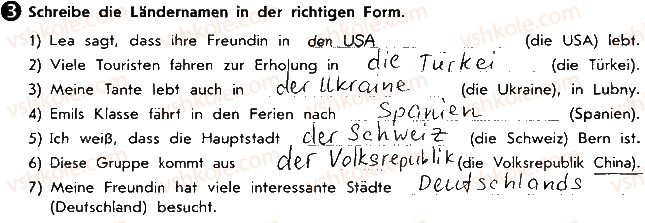 3 Schreibe die Ländernamen in der richtigen Form.
1) Lea sagt, dass ihre Freundin in den USA (die USA) lebt.
2) Viele Touristen fahren zur Erholung in die Türkei (die Türkei).
3) Meine Tante lebt auch in der Ukraine (die Ukraine), in Lubny.
4) Emils Klasse fährt in den Ferien nach Spanien (Spanien).
5) Ich weiß, dass die Hauptstadt der Schweiz (die Schweiz) Bern ist.
6) Diese Gruppe kommt aus der Volksrepublik (die Volksrepublik China).
7) Meine Freundin hat viele interessante Städte Deutschlands
(Deutschland) besucht.